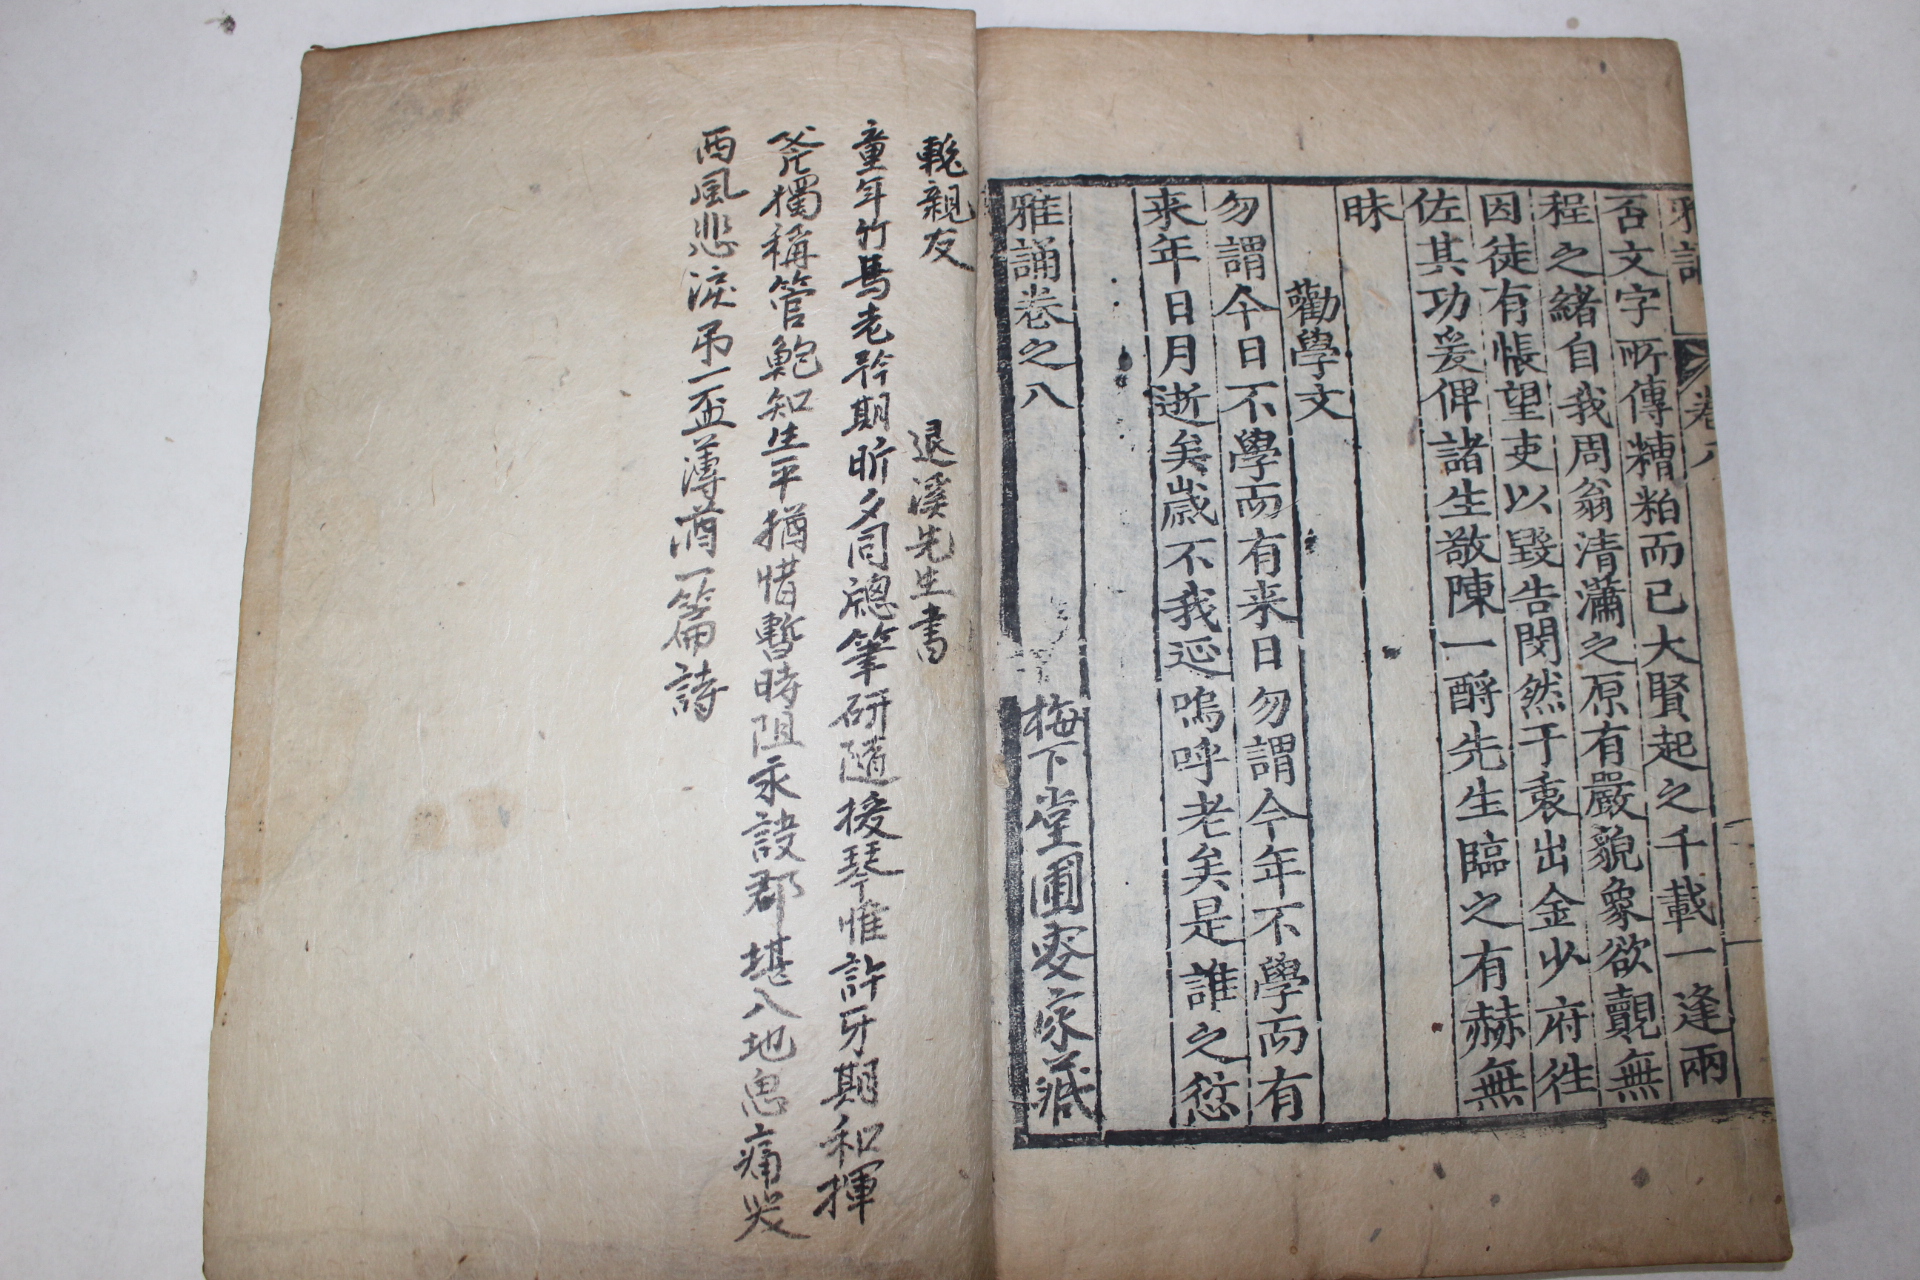 雅誦 卷八
否文字所傳糟粕而已大賢起之千載一逢兩
程之緒自我周翁清瀟之原有嚴貌象欲覿無
因徒有悵望吏以毀告閔然于衷出金少府往
佐其功爰俾諸生敬陳一酹先生臨之有赫無
昧
勸學文
勿謂今日不學而有来日勿謂今年不學而有
来年日月逝矣歲不我延嗚呼老矣是誰之愆
雅誦卷之八
梅下堂圃窓家藏
輓親友 退溪先生書
童年竹馬老矜期昕夕同牕筆研隨援琴惟許牙期和揮
斧獨稱管鮑知生平猶惜暫時阻永訣那堪入地悤痛哭
西風悲淚吊一盃薄酒一篇詩